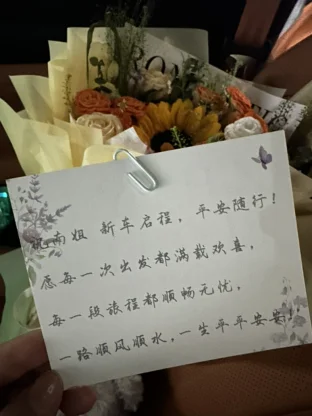 祝南姐 新车启程，平安随行！
愿每一次出发都满载欢喜，
每一段旅程都顺畅无忧，
一路顺风顺水，一生平平安安！